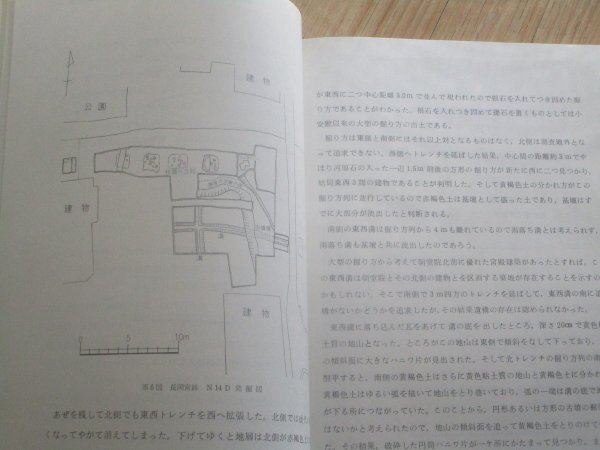 建物
公園
建物
溝
溝
建物
0 5 10m
第6図 長岡宮跡 N14D 発掘図
あぜを残して北側でも東西トレンチを西へ拡張した。北側では
くなってやがて消えてしまった。下げてゆくと地層は北側が赤褐色
が東西に二つ中心距離3.0mで並んで現われたので根石を入れてつき固めた掘
り方であることがわかった。根石を入れてつき固めて礎石を置くものとしては小
安殿以来の大型の掘り方の出土である。
掘り方は東側と南側にはそれ以上対となるものはなく、北側は調査地外とな
って追求できない。西側へトレンチを延ばした結果、中心間の距離約3mでや
はり河原石の入った一辺1.5m前後の方形の掘り方が新たに西に二つ見つかり、
結局東西3間の建物であることが判明した。そして黄褐色土の分かれ方がこの
掘り方列に走行しているので赤褐色土は基壇として張った土であり、基壇はす
でに大部分が流出したと判断される。
南側の東西溝は掘り方列から4mも離れているので雨落ち溝とは考えられず、
雨落ち溝も基壇と共に流出したのであろう。
大型の掘り方から考えて朝堂院北部に優れた宮殿建築があったとすれば、こ
の東西溝は朝堂院とその北側の建物とを区画する築地が存在することを示すの
かもしれない。そこで南側で3m四方のトレンチを延ばして、東西溝の南に遺
構がないかどうかを追求したが、その結果遺構の存在は認められなかった。
東西溝に落ち込んだ瓦をあげて溝の底を出したところ、深さ20cmで黄色粘
土質の地山となった。ところがこの地山は東側で傾斜をなして下っており、
の傾斜面に大きなハニワ片が見出された。そして北トレンチの掘り方列の南
削平すると、南側の黄褐色土はさらに黄色粘土質の地山と黄褐色土に分かれ
黄褐色土はゆるい弧を描いて地山をとり巻いており、弧の一端は溝の底で地
が下る所につながっていた。このことから、円形あるいは方形の古墳の裾
はないかと考えられたので、地山の傾斜面を追って黄褐色土をとりのけて
た。その結果、破砕した円筒ハニワ片が一ケ所にかたまって見つかり、ま